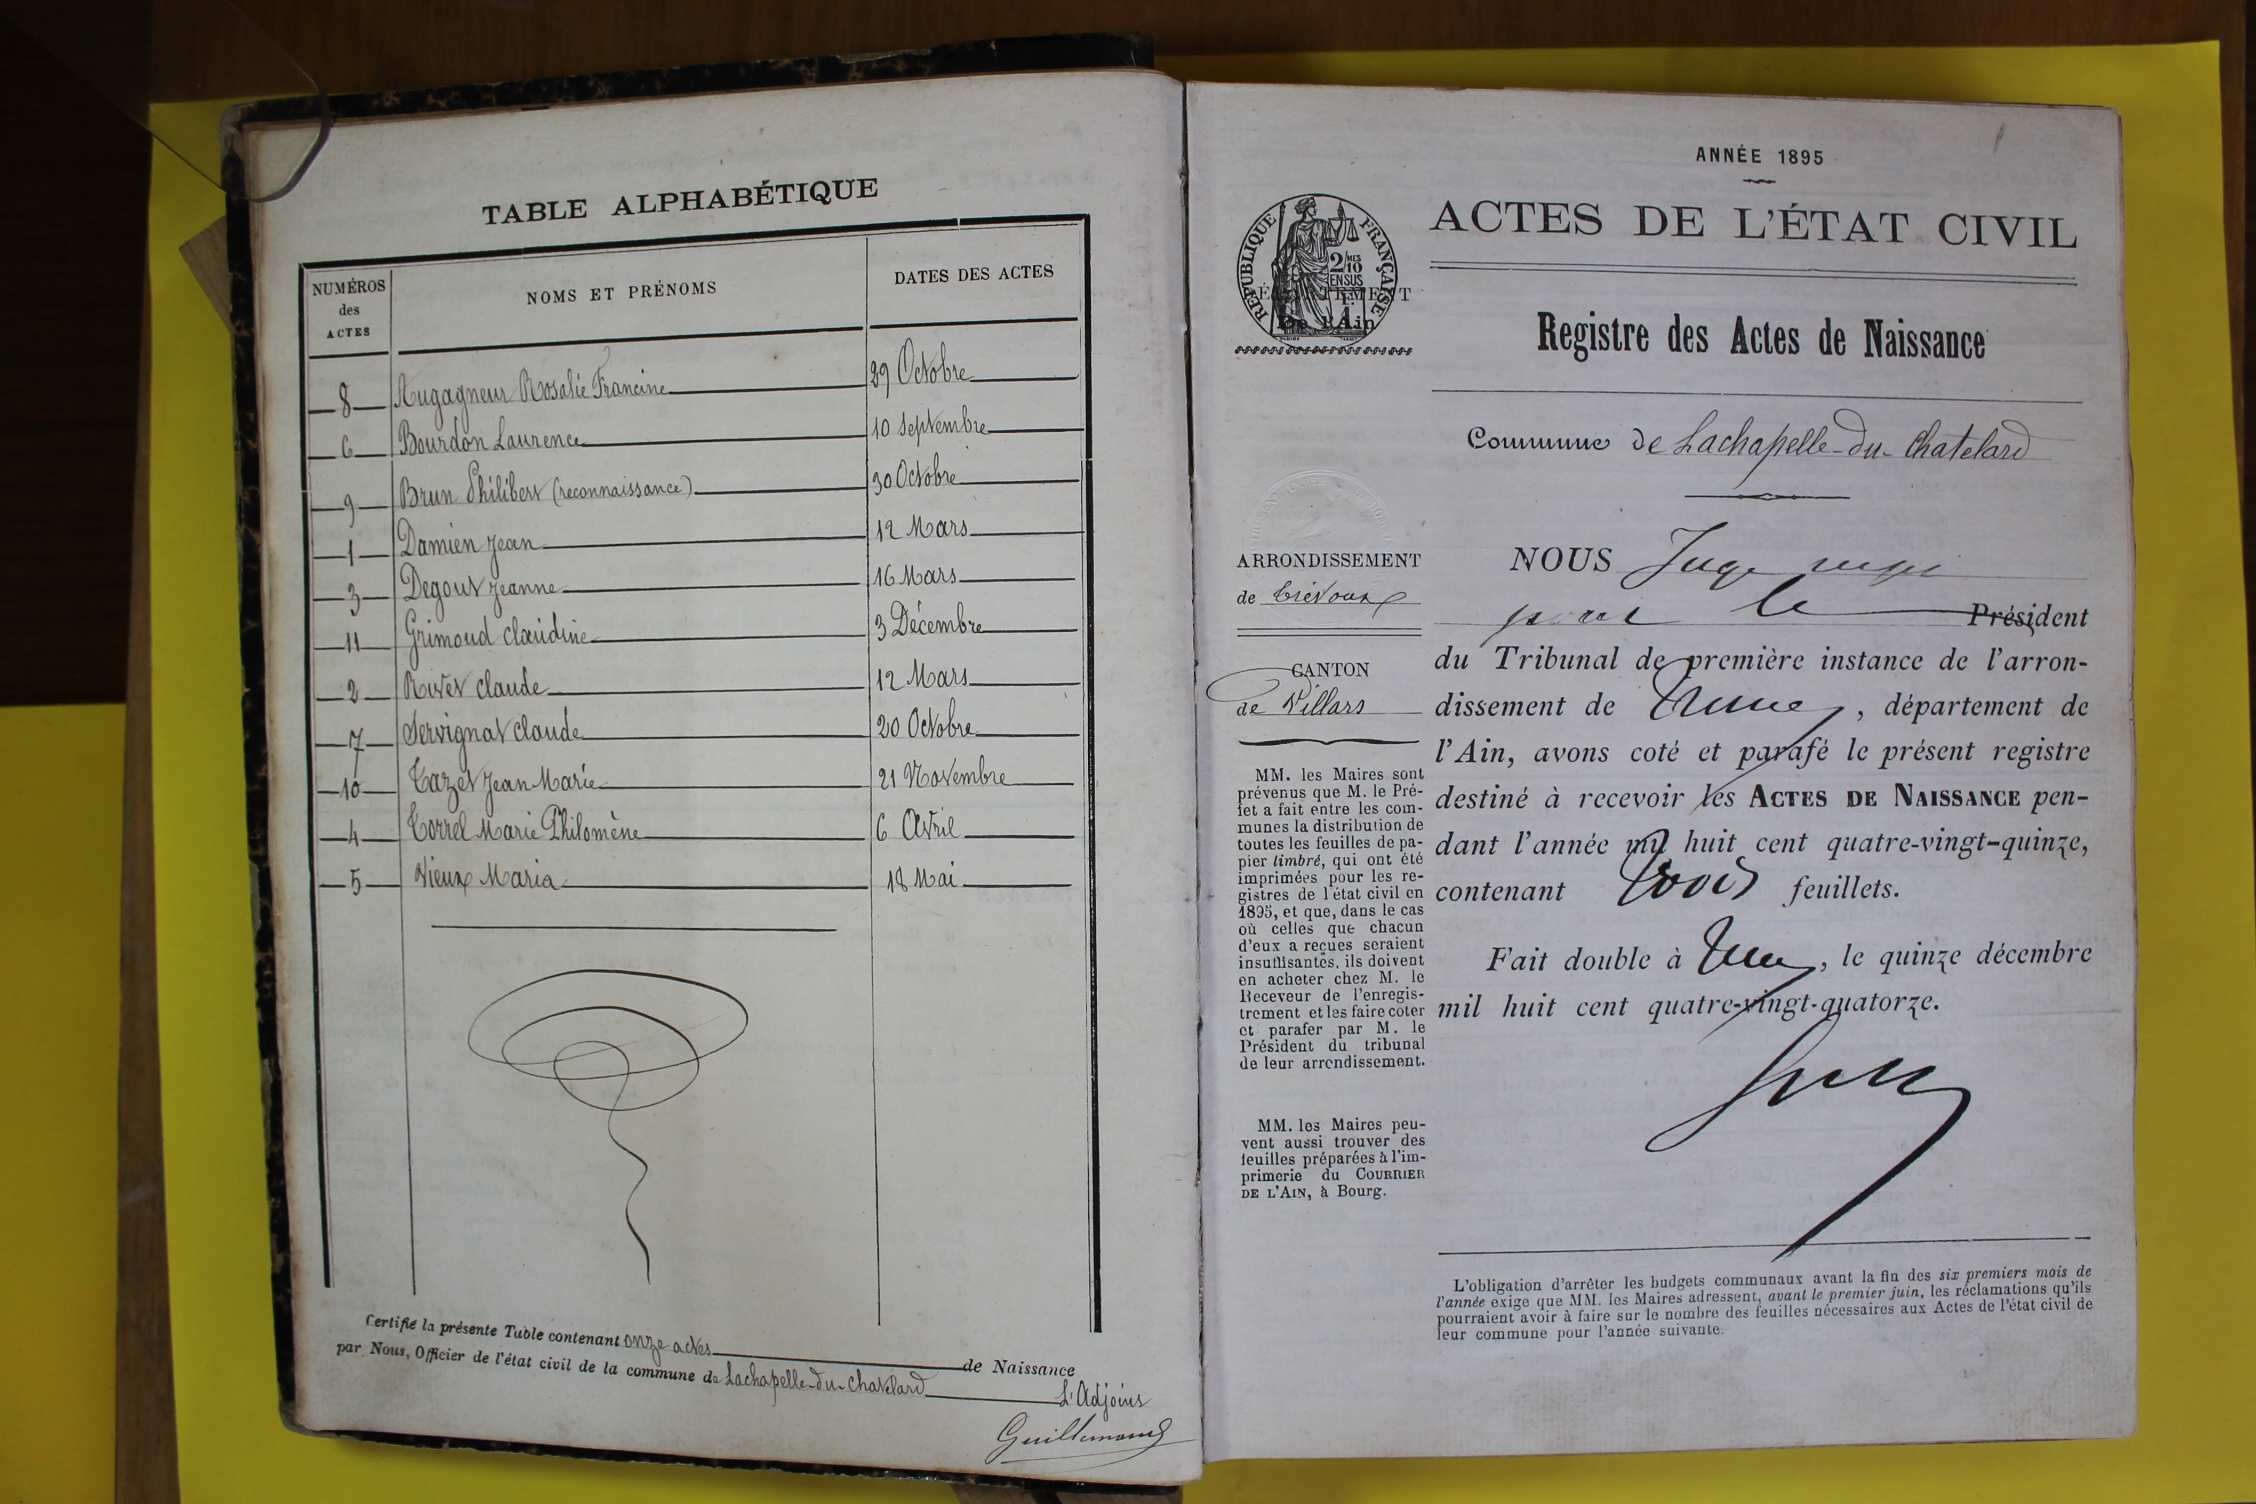 TABLE ALPHABÉTIQUE
NUMÉROS
des
ACTES
NOMS ET PRÉNOMS
DATES DES ACTES
8 Augagneur Rosalie Francine 29 Octobre
6 Bourdon Laurence 10 septembre
9 Brun Philibert (reconnaissance) 30 Octobre
1 Damien Jean 12 Mars
3 Degout Jeanne 16 Mars
11 Grimoud Claudine 3 Décembre
2 Rivet Claude 12 Mars
7 Servignat Claude 20 Octobre
10 Tazet Jean Marie 21 Novembre
4 Torrel Marie Philomène 6 Avril
5 Vieux Maria 18 Mai
Certifié la présente Table contenant onze actes de Naissance
par Nous, Officier de l'état civil de la commune de Lachapelle-du-Chatelard
L'Adjoint
Guillemaud
ANNÉE 1895
ACTES DE L'ÉTAT CIVIL
RÉPUBLIQUE FRANÇAISE
2/10 MES
EN SUS
De l'Ain
Registre des Actes de Naissance
Commune de Lachapelle-du-Chatelard
ARRONDISSEMENT
de Trévoux
CANTON
de Villars
MM. les Maires sont
prévenus que M. le Pré-
fet a fait entre les com-
munes la distribution de
toutes les feuilles de pa-
pier timbré, qui ont été
imprimées pour les re-
gistres de l'état civil en
1895, et que, dans le cas
où celles que chacun
d'eux a reçues seraient
insuffisantes, ils doivent
en acheter chez M. le
Receveur de l'enregis-
trement et les faire coter
et parafer par M. le
Président du tribunal
de leur arrondissement.
MM. les Maires peu-
vent aussi trouver des
feuilles préparées à l'im-
primerie du COURRIER
DE L'AIN, à Bourg.
NOUS Juge
pour le Président
du Tribunal de première instance de l'arron-
dissement de , département de
l'Ain, avons coté et parafé le présent registre
destiné à recevoir les ACTES DE NAISSANCE pen-
dant l'année mil huit cent quatre-vingt-quinze,
contenant trois feuillets.
Fait double à , le quinze décembre
mil huit cent quatre-vingt-quatorze.
L'obligation d'arrêter les budgets communaux avant la fin des six premiers mois de
l'année exige que MM. les Maires adressent, avant le premier juin, les réclamations qu'ils
pourraient avoir à faire sur le nombre des feuilles nécessaires aux Actes de l'état civil de
leur commune pour l'année suivante.